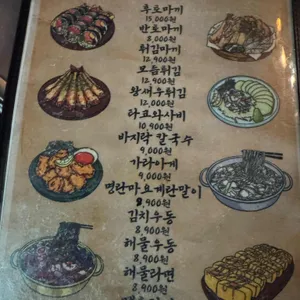 후토마끼
15,000원
반토마끼
8,000원
튀김마끼
12,900원
모듬튀김
12,900원
왕새우튀김
12,000원
타코와사비
10,900원
바지락 칼국수
9,000원
가라아게
9,000원
명란마요계란말이
8,900원
김치우동
8,900원
해물우동
8,900원
해물라면
8,900원